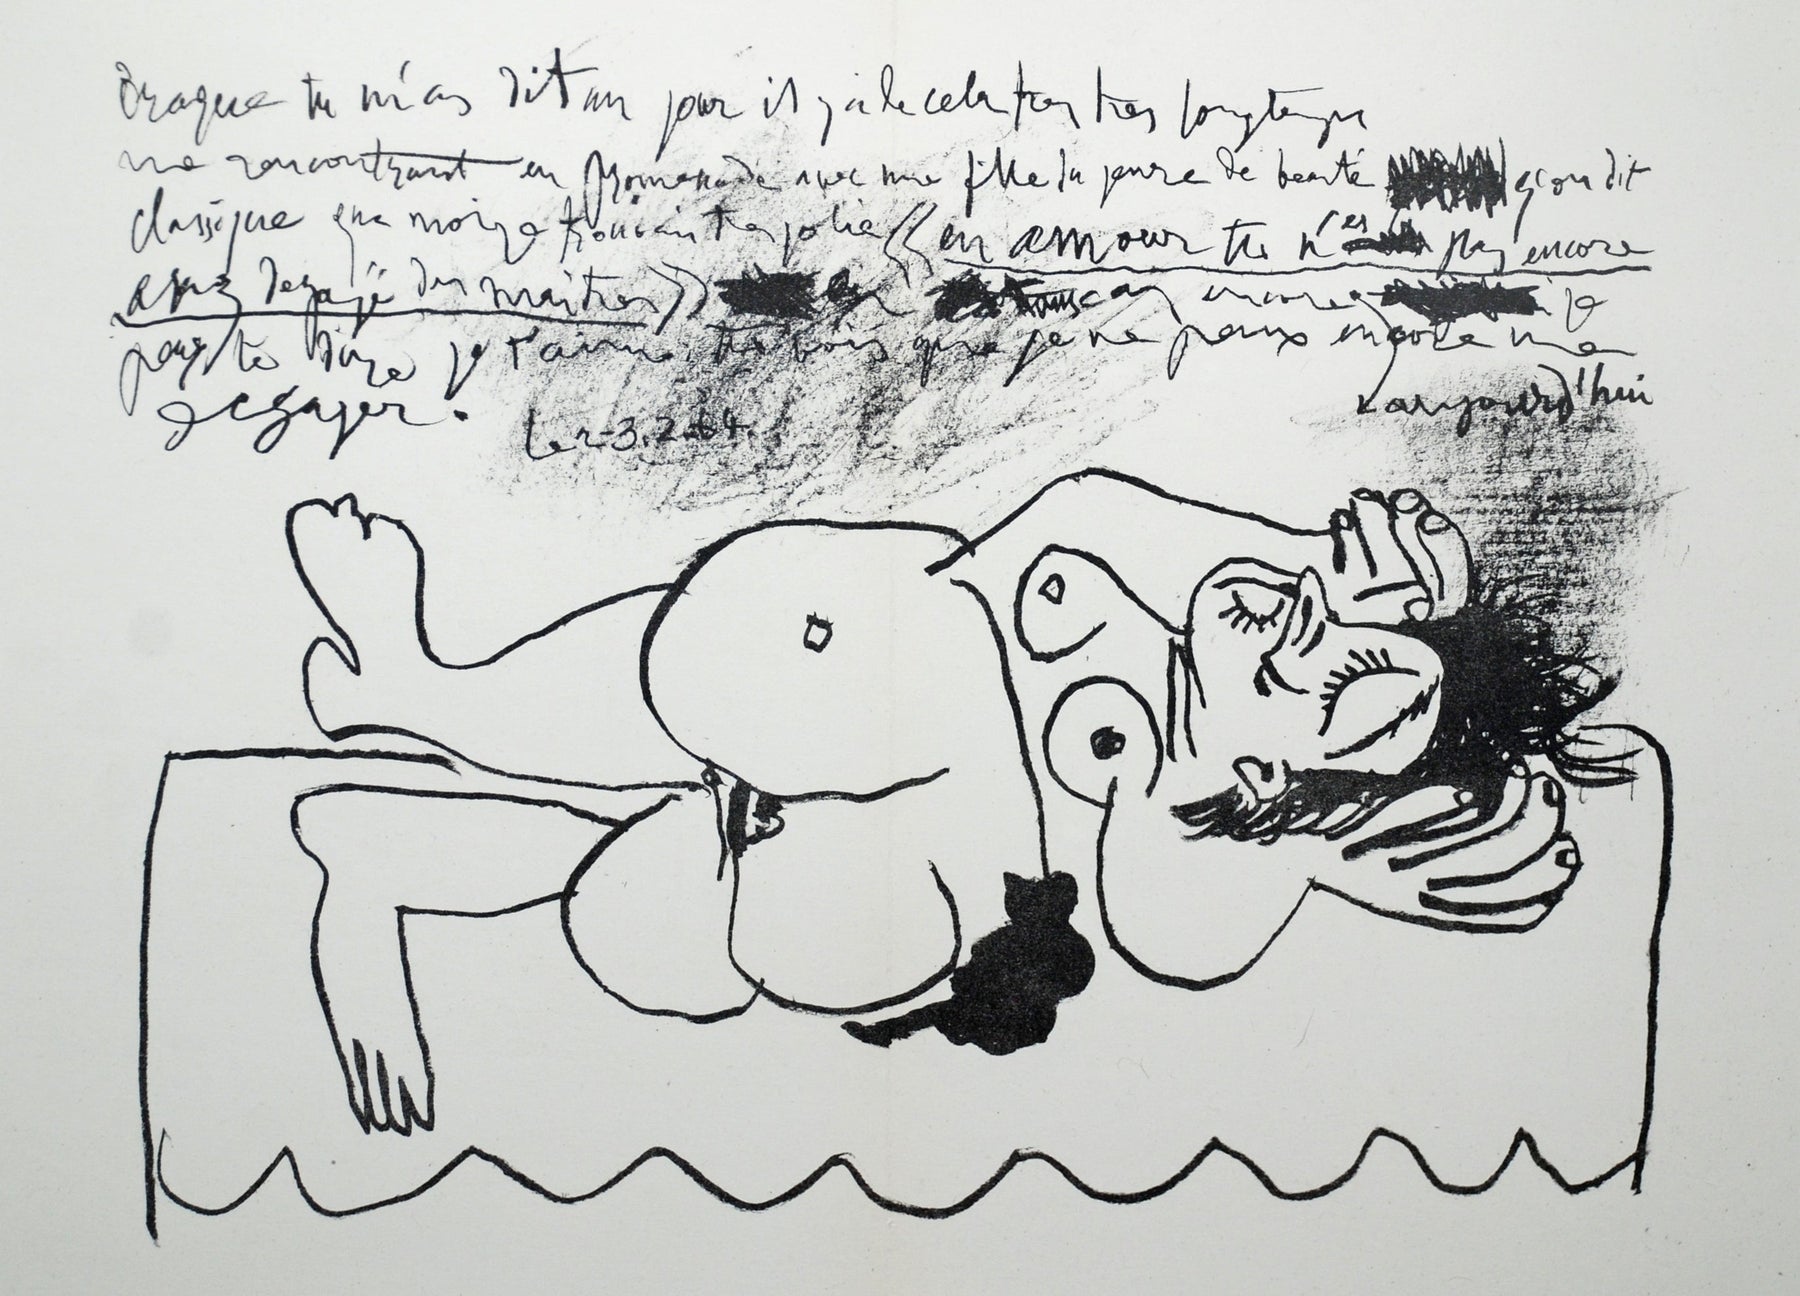 Braque tu m'as dit un jour il y a de cela tres tres longtemps
me rencontrant en promenade avec une fille du genre de beauté qu'on dit
classique que moi je trouvais tres jolie « en amour tu n'es pas encore
assez degagé des maitres » en cas encore je
peux te dire je t'aime. tu vois que je ne peux encore me
aujourd'hui
degager.
Le 2-3.2.64.